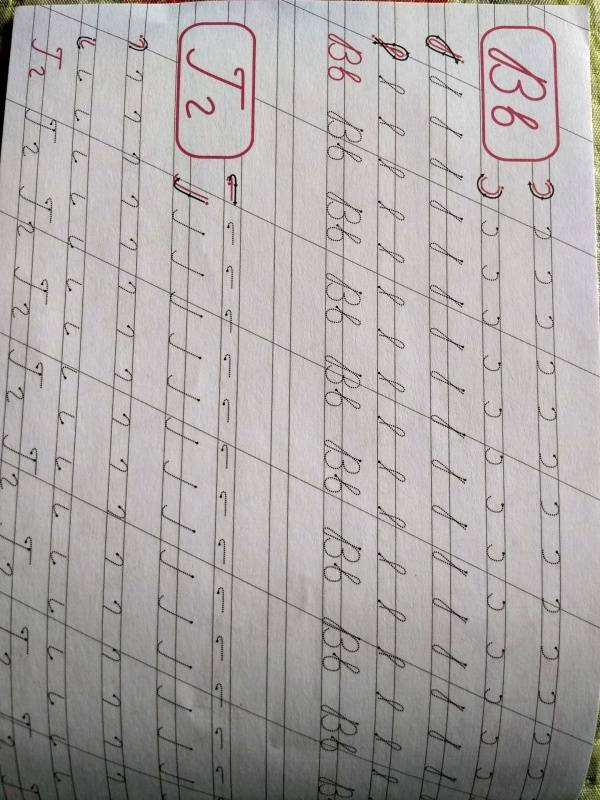 Вв
Вв Вв Вв Вв Вв Вв Вв Вв Вв
Гг
Гг Гг Гг Гг Гг Гг Гг Гг Гг Г